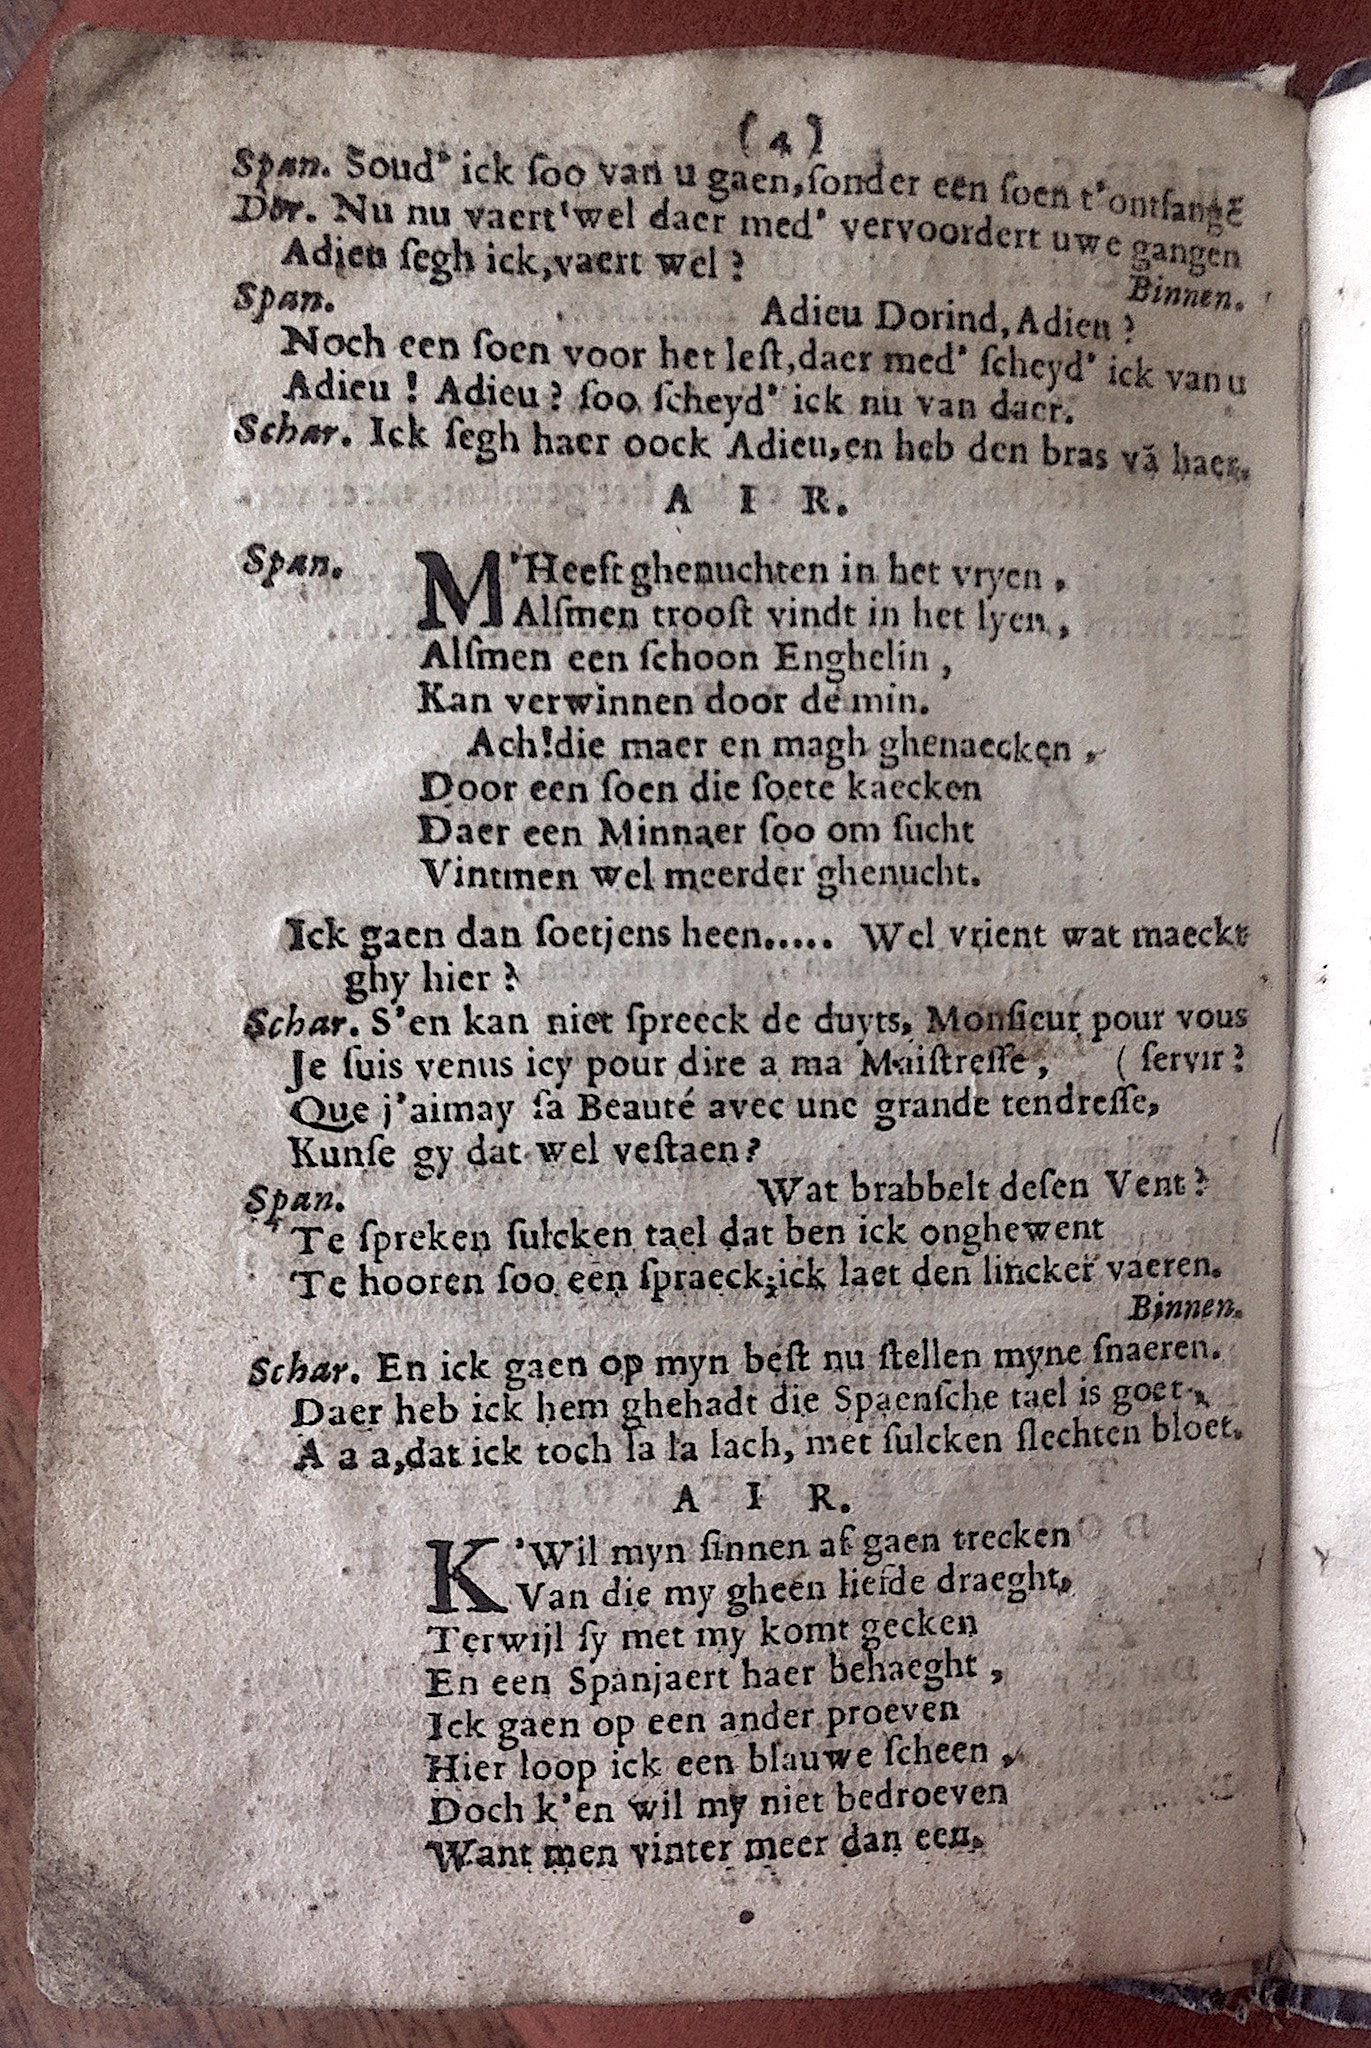 (4)
Span. Soud' ick ſoo van u gaen, ſonder een ſoen t'ontfangẽ
Dor. Nu nu vaert'wel daer med' vervoordert uwe gangen
Adieu ſegh ick, vaert wel?
Binnen.
Span. Adieu Dorind, Adieu?
Noch een ſoen voor het leſt, daer med' ſcheyd' ick van u
Adieu! Adieu? ſoo ſcheyd' ick nu van daer.
Schar. Ick ſegh haer oock Adieu, en heb den bras vã haer.
A I R.
Span. M'Heeft ghenuchten in het vryen,
Alſmen trooſt vindt in het lyen,
Alſmen een ſchoon Enghelin,
Kan verwinnen door de min.
Ach! die maer en magh ghenaecken,
Door een ſoen die ſoete kaecken
Daer een Minnaer ſoo om ſucht
Vintmen wel meerder ghenucht.
Ick gaen dan ſoetjens heen..... Wel vrient wat maeckt
ghy hier?
Schar. S'en kan niet ſpreeck de duyts, Monſieur pour vous
Je ſuis venus icy pour dire a ma Maiſtreſſe, ( ſervir?
Que j'aimay ſa Beauté avec une grande tendreſſe,
Kunſe gy dat wel veſtaen?
Span. Wat brabbelt deſen Vent?
Te ſpreken ſulcken tael dat ben ick onghewent
Te hooren ſoo een ſpraeck; ick laet den lincker vaeren.
Binnen.
Schar. En ick gaen op myn beſt nu ſtellen myne ſnaeren.
Daer heb ick hem ghehadt die Spaenſche tael is goet,
A a a, dat ick toch la la lach, met ſulcken ſlechten bloet.
A I R.
K'Wil myn ſinnen af gaen trecken
Van die my gheen liefde draeght,
Terwijl ſy met my komt gecken
En een Spanjaert haer behaeght,
Ick gaen op een ander proeven
Hier loop ick een blauwe ſcheen,
Doch k'en wil my niet bedroeven
Want men vinter meer dan een.